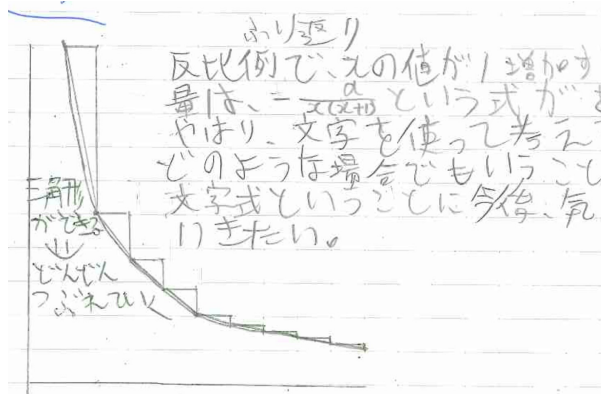 ふり返り
反比例で、xの値が1増加す
量は、-a/x(x+1)という式が
やはり、文字を使って考え
どのような場合でもいうこと
文字式ということに今後、気
いきたい。
三角形
ができる。
↓
どんどん
つぶれてい